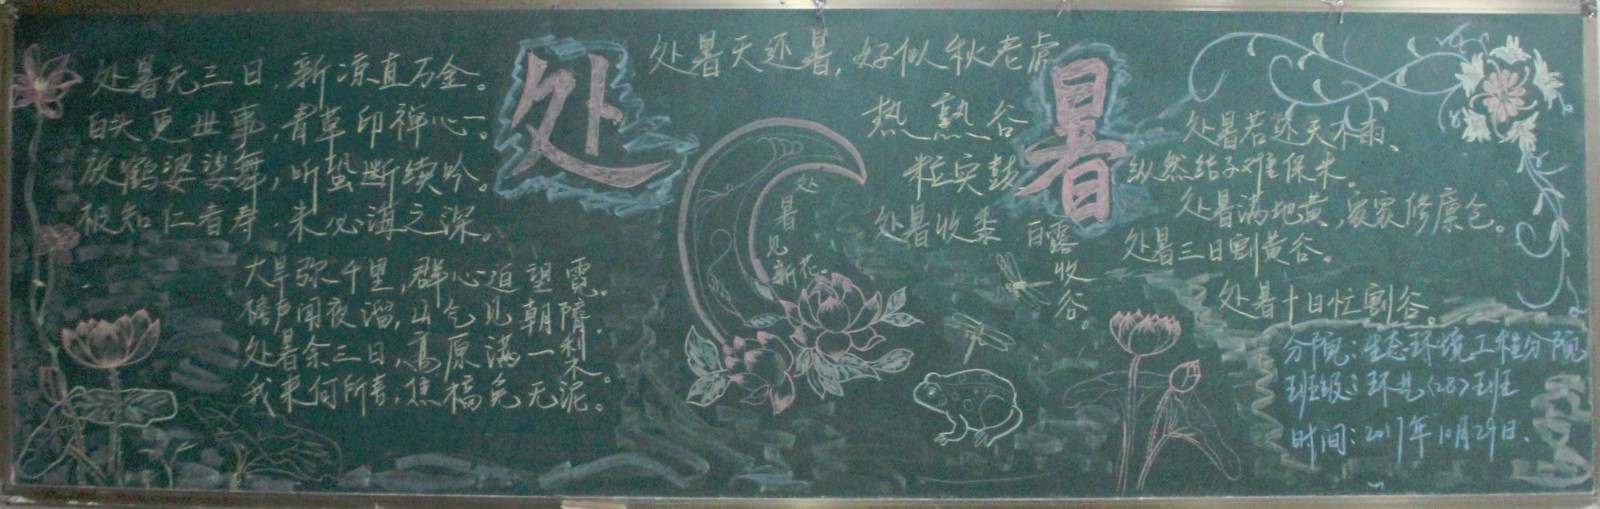 处暑无三日，新凉直万金。
白头更世事，青草印禅心。
放鹤婆娑舞，听蛩断续吟。
极知仁者寿，未必海之深。
大旱弥千里，群心迫望霓。
檐声闻夜溜，山气见朝隮。
处暑余三日，高原满一犁。
我来何所喜，焦槁免无泥。
处
处暑天还暑，好似秋老虎
热熟谷
粒实鼓
处暑收黍
白露收谷。
处暑见新花。
暑
处暑若还天不雨、
纵然结子难保米。
处暑满地黄，家家修廪仓。
处暑三日割黄谷。
处暑十日忙割谷。
分院：生态环境工程分院
班级：环艺(28)班
时间：2017年10月29日、